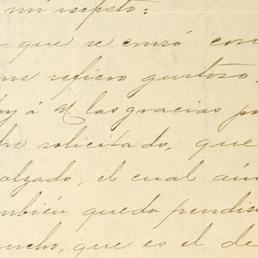 mi respeto:
que se envió con
me refiero gustoso
á V. las gracias po
solicitado, que
alzado, el cual aún
también queda pendie
mucho, que es el de